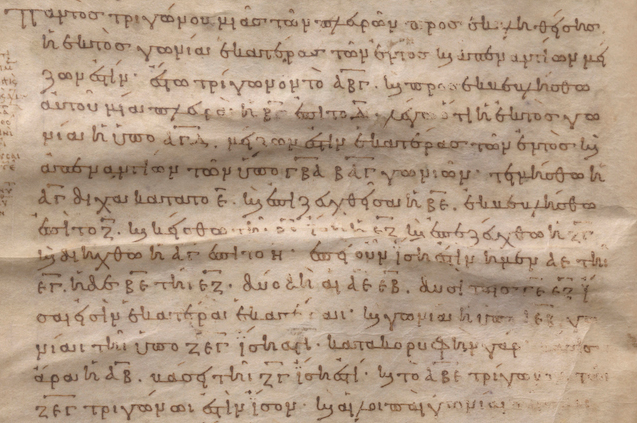 Παντὸς τριγώνου μιᾶς τῶν πλευρῶν προσεκβληθείσης
ἡ ἐκτὸς γωνία ἑκατέρας τῶν ἐντὸς καὶ ἀπεναντίον μεί
ζων ἐστίν· ἔστω τρίγωνον τὸ ΑΒΓ. καὶ προσεκβεβλήσθω
αὐτοῦ μία πλευρὰ ἡ ΒΓ ἐπὶ τὸ Δ. λέγω ὅτι ἡ ἐκτὸς γω
νία ἡ ὑπὸ ΑΓΔ. μείζων ἐστὶν ἑκατέρας τῶν ἐντὸς καὶ
ἀπεναντίον τῶν ὑπὸ ΓΒΑ ΒΑΓ γωνιῶν· τετμήσθω ἡ
ΑΓ δίχα κατὰ τὸ Ε. καὶ ἐπιζευχθεῖσα ἡ ΒΕ. ἐκβεβλήσθω
ἐπὶ τὸ Ζ. καὶ κείσθω τῆι ΒΕ ἴση ἡ ΕΖ καὶ ἐπεζεύχθω ἡ ΖΓ
καὶ διήχθω ἡ ΑΓ ἐπὶ τὸ Η· ἐπεὶ οὖν ἴση ἐστὶν ἡ μὲν ΑΕ τῆι
ΕΓ. ἡ δὲ ΒΕ τῆι ΕΖ. δύο δὴ αἱ ΑΕ ΕΒ. δυσὶ ταῖς ΓΕ ΕΖ ἴ
σαι εἰσὶν ἑκατέρα ἑκατέραι· καὶ γωνία ἡ ὑπὸ ΑΕΒ γω
νίαι τῆι ὑπὸ ΖΕΓ ἴση ἐστί· κατὰ κορυφὴν γάρ
ἄρα ἡ ΑΒ. βάσει τῆι ΖΓ ἴση ἐστί· καὶ τὸ ΑΒΕ τρίγωνον
ΖΕΓ τριγώνωι ἐστὶν ἴσον· καὶ αἱ λοιπαὶ γωνίαι